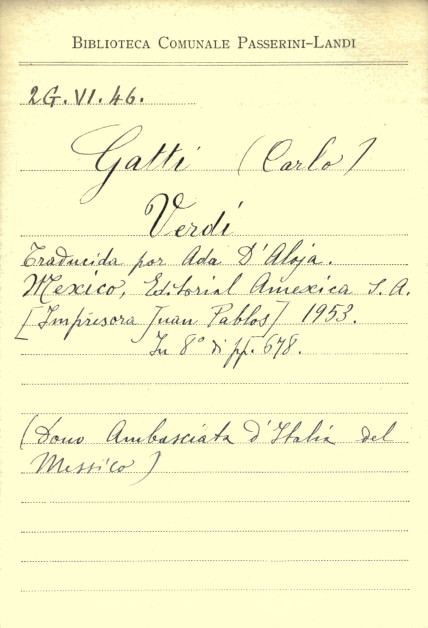 BIBLIOTECA COMUNALE PASSERINI-LANDI
2G.VI.46.
Gatti (Carlo)
Verdi
Traducida por Ada D'Aloja.
Mexico, Editorial Amexica S.A.
[Impresora Juan Pablos] 1953.
In 8° di pp. 678.
(Dono Ambasciata d'Italia del
Messico)